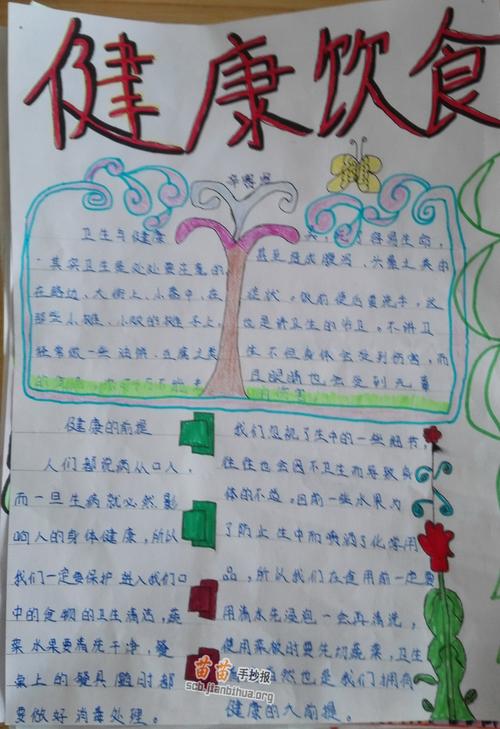 健康饮食
卫生与健康
其实卫生是必处要注意的
在路边,大街上,小巷中,在
那些小摊,小贩的摊子上,
经常做一些油饼、豆腐之类
了得过生命,
甚至造成腹泻,火暴之类的
症状。饭前便后要洗手,这
也是讲卫生的方卫。不讲卫
生不但身体会受到伤害,而
且眼睛也会受到无辜
的伤害
健康的前提
人们都说病从口入,
而一旦生病就必然影
响人的身体健康,所以
我们一定要保护进入我们口
中的食物的卫生清洁,蔬
菜水果要清洗干净,餐
桌上的餐具随时都
要做好消毒处理。
我们忽视了生中的一些细节,
往往也会因不卫生而导致身
体的不适。目前一些水果为
了防止生中而喷洒了化常用
品,所以我们在食用前一定要
用清水先浸泡一会再清洗,
使用菜板时要先切蔬菜,卫生
自然也是我们拥有
健康的大前提。
苗苗手抄报
scb.jianbihua.org